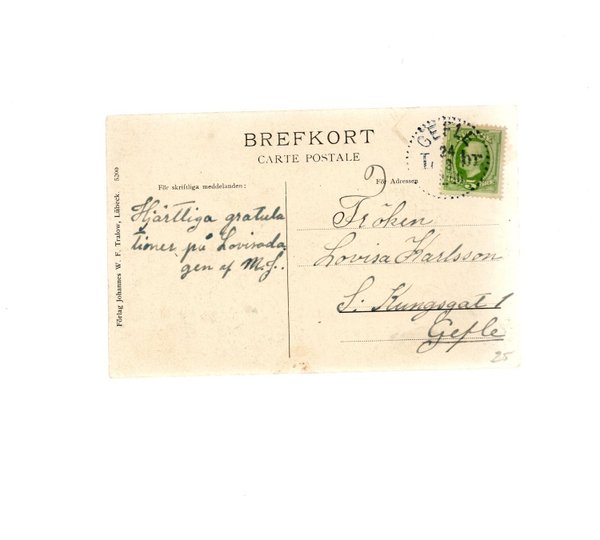 BREFKORT
CARTE POSTALE
GEFLE
24
För skriftliga meddelanden:
För Adressen
Hjärtliga gratula
tioner på Lovisada
gen af M.S.
Fröken
Lovisa Karlsson
S. Kungsgat 1
Gefle
25
Förlag Johannes W. F. Tralow, Lübeck. 5200